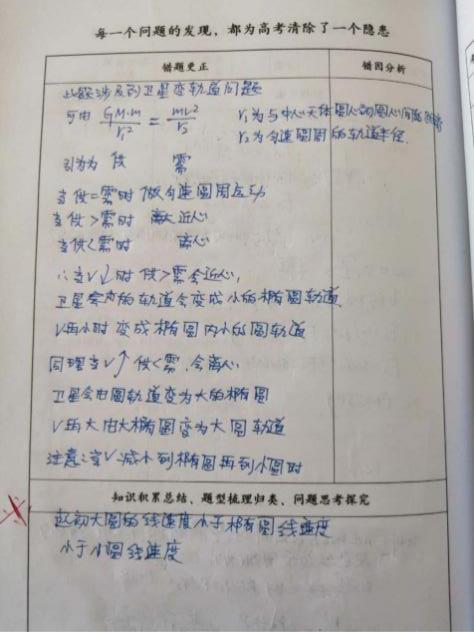 每一个问题的发现，都为高考清除了一个隐患
错题更正 错因分析
此题涉及到卫星变轨道问题
可由 GM·m/r₁² = mv²/r₂ r₁为与中心天体圆心的圆心间距
r₂为匀速圆周的轨道半径
供 需
当供=需时 做匀速圆周运动
当供>需时 近心
当供<需时 离心
∴当V↓时 供>需会近心,
卫星会由的轨道会变成小的椭圆轨道
V再小时 变成椭圆内小的圆轨道
同理当V↑ 供<需,会离心
卫星会由圆轨道变为大的椭圆
V再大由大椭圆变为大圆轨道
注意:当V减小到椭圆再到小圆时
知识积累总结、题型梳理归类、问题思考探究
起初大圆的线速度小于椭圆线速度
小于小圆线速度